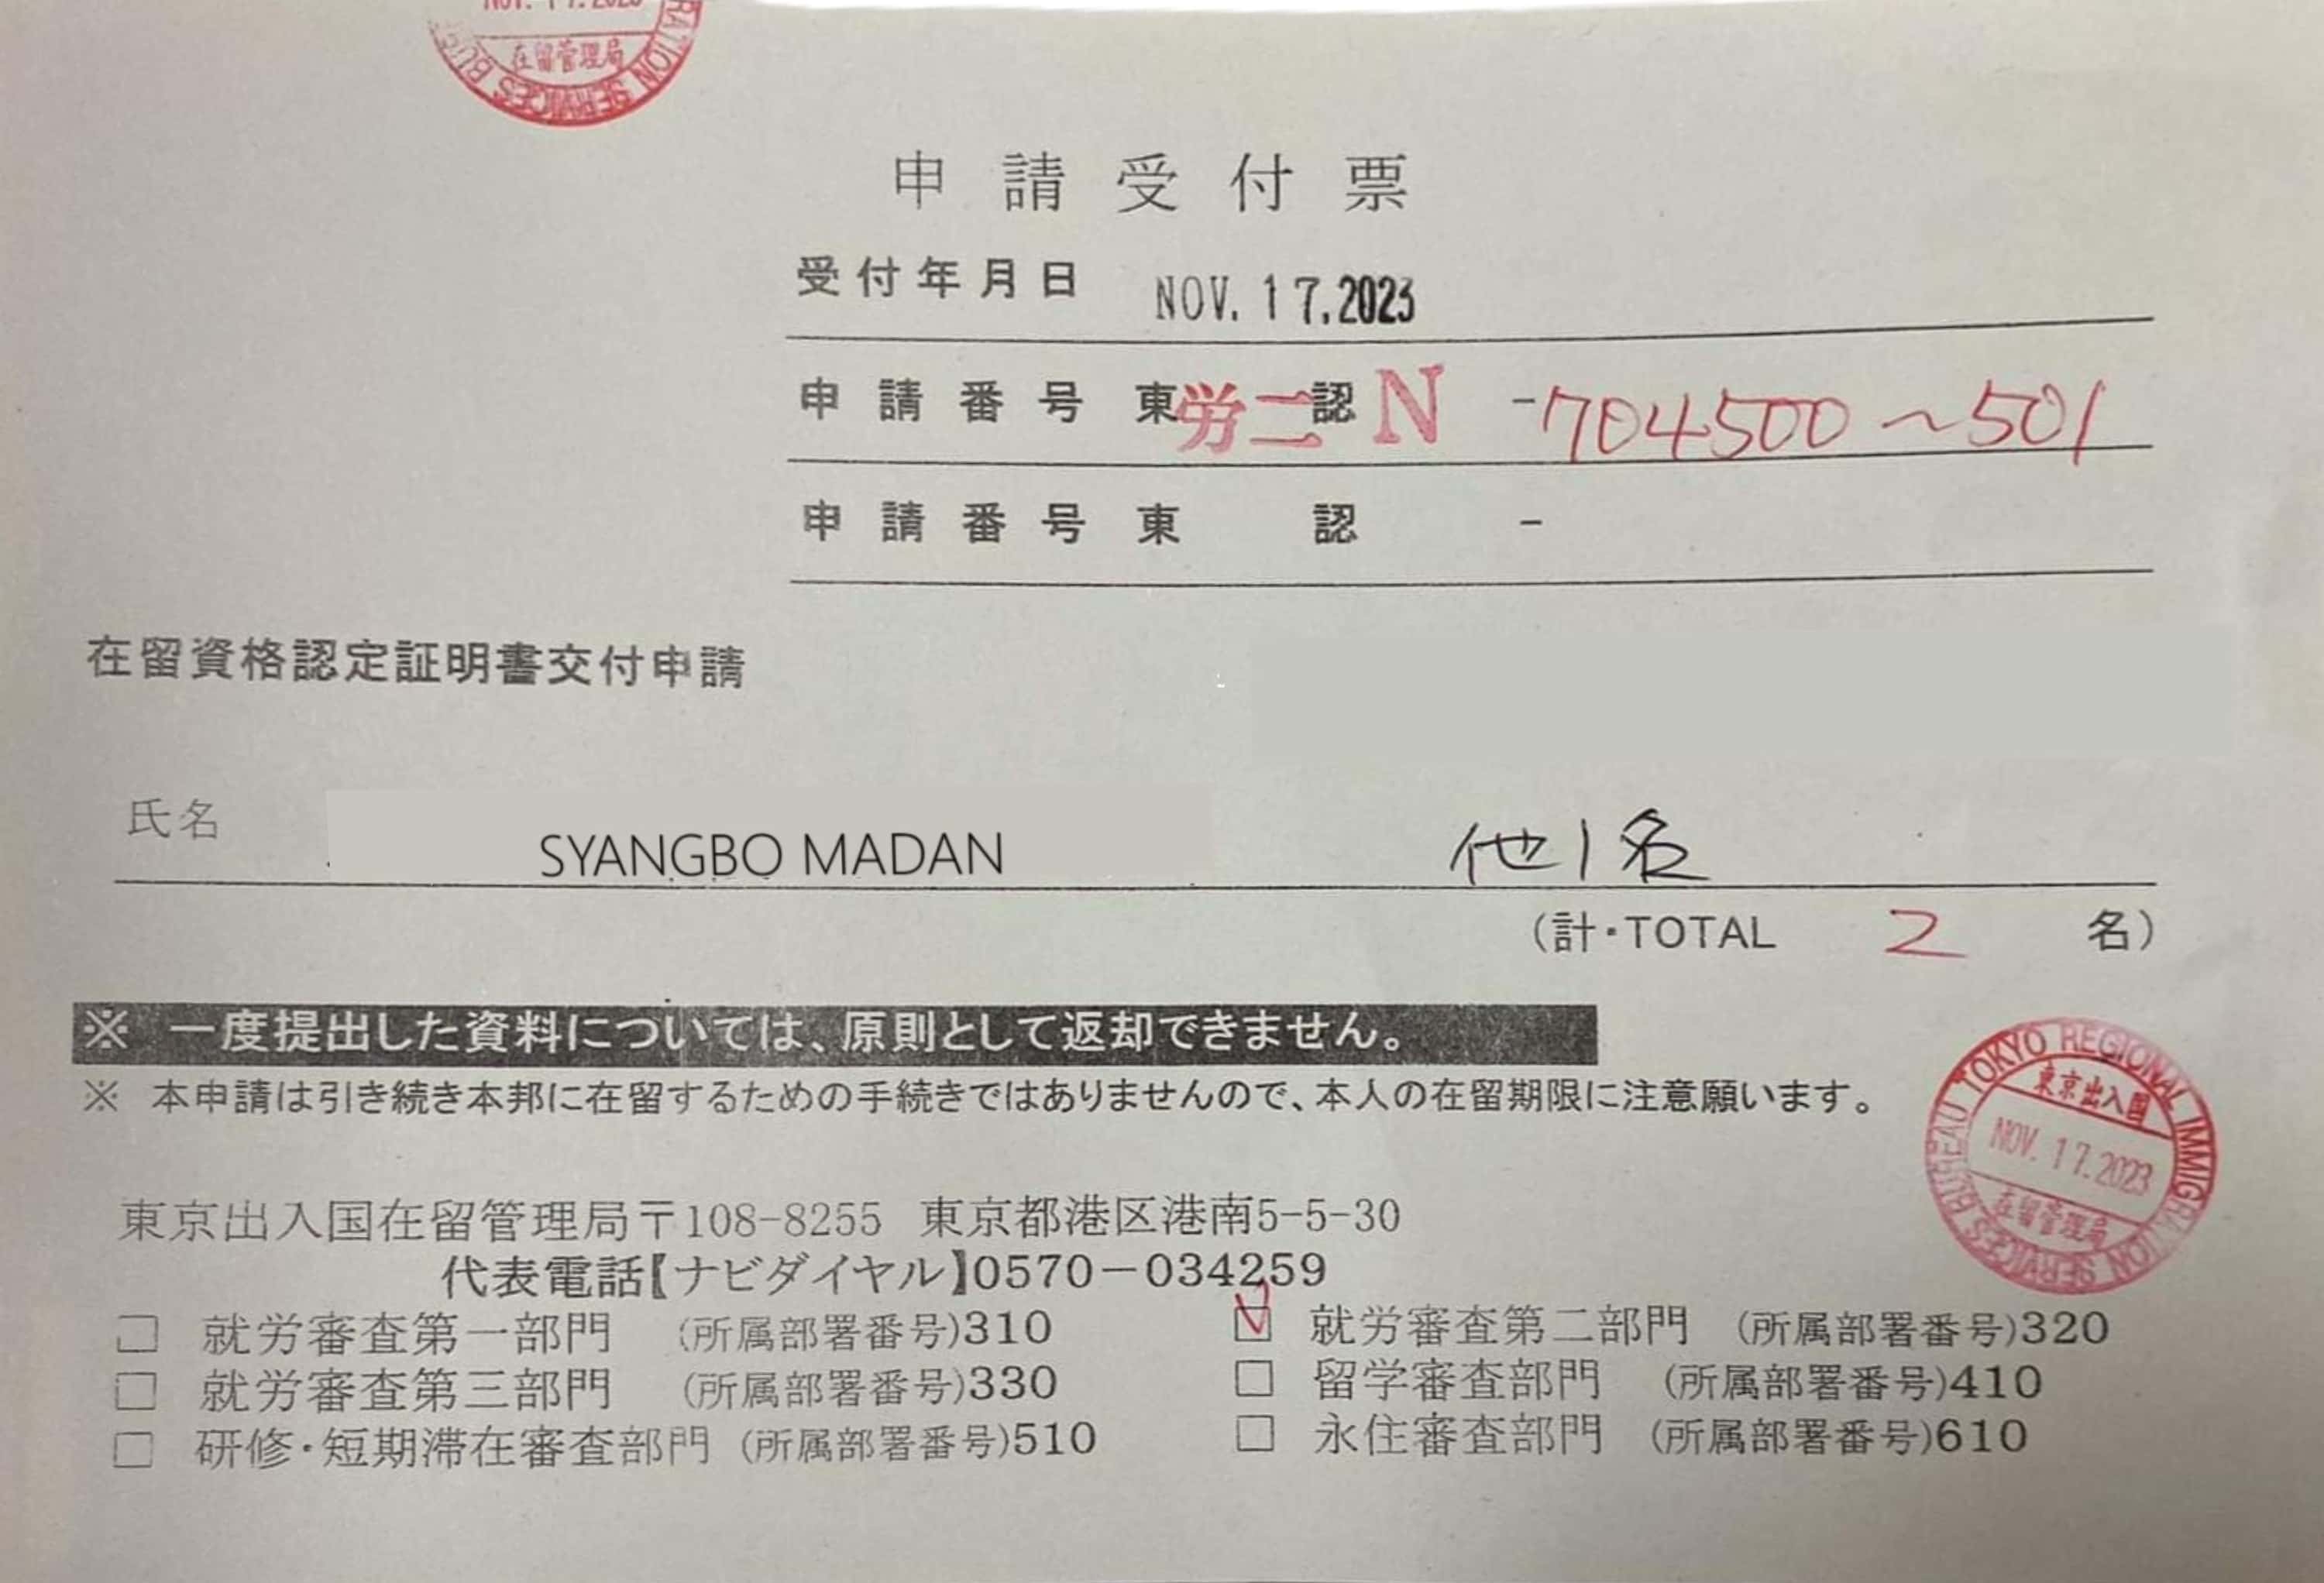 NOV. 17.2023
在留管理局
RATION SERVICES BU
申請受付票
受付年月日 NOV. 17.2023
申請番号 東労二認N -704500~501
申請番号 東 認 -
在留資格認定証明書交付申請
氏名 SYANGBO MADAN 他1名
(計・TOTAL 2 名)
※ 一度提出した資料については、原則として返却できません。
※ 本申請は引き続き本邦に在留するための手続きではありませんので、本人の在留期限に注意願います。
TOKYO REGIONAL IMMIGRATION SERVICES BUREAU
東京出入国
NOV. 17.2023
在留管理局
東京出入国在留管理局〒108-8255 東京都港区港南5-5-30
代表電話【ナビダイヤル】0570-034259
□ 就労審査第一部門 (所属部署番号)310 ☑ 就労審査第二部門 (所属部署番号)320
□ 就労審査第三部門 (所属部署番号)330 □ 留学審査部門 (所属部署番号)410
□ 研修・短期滞在審査部門 (所属部署番号)510 □ 永住審査部門 (所属部署番号)610